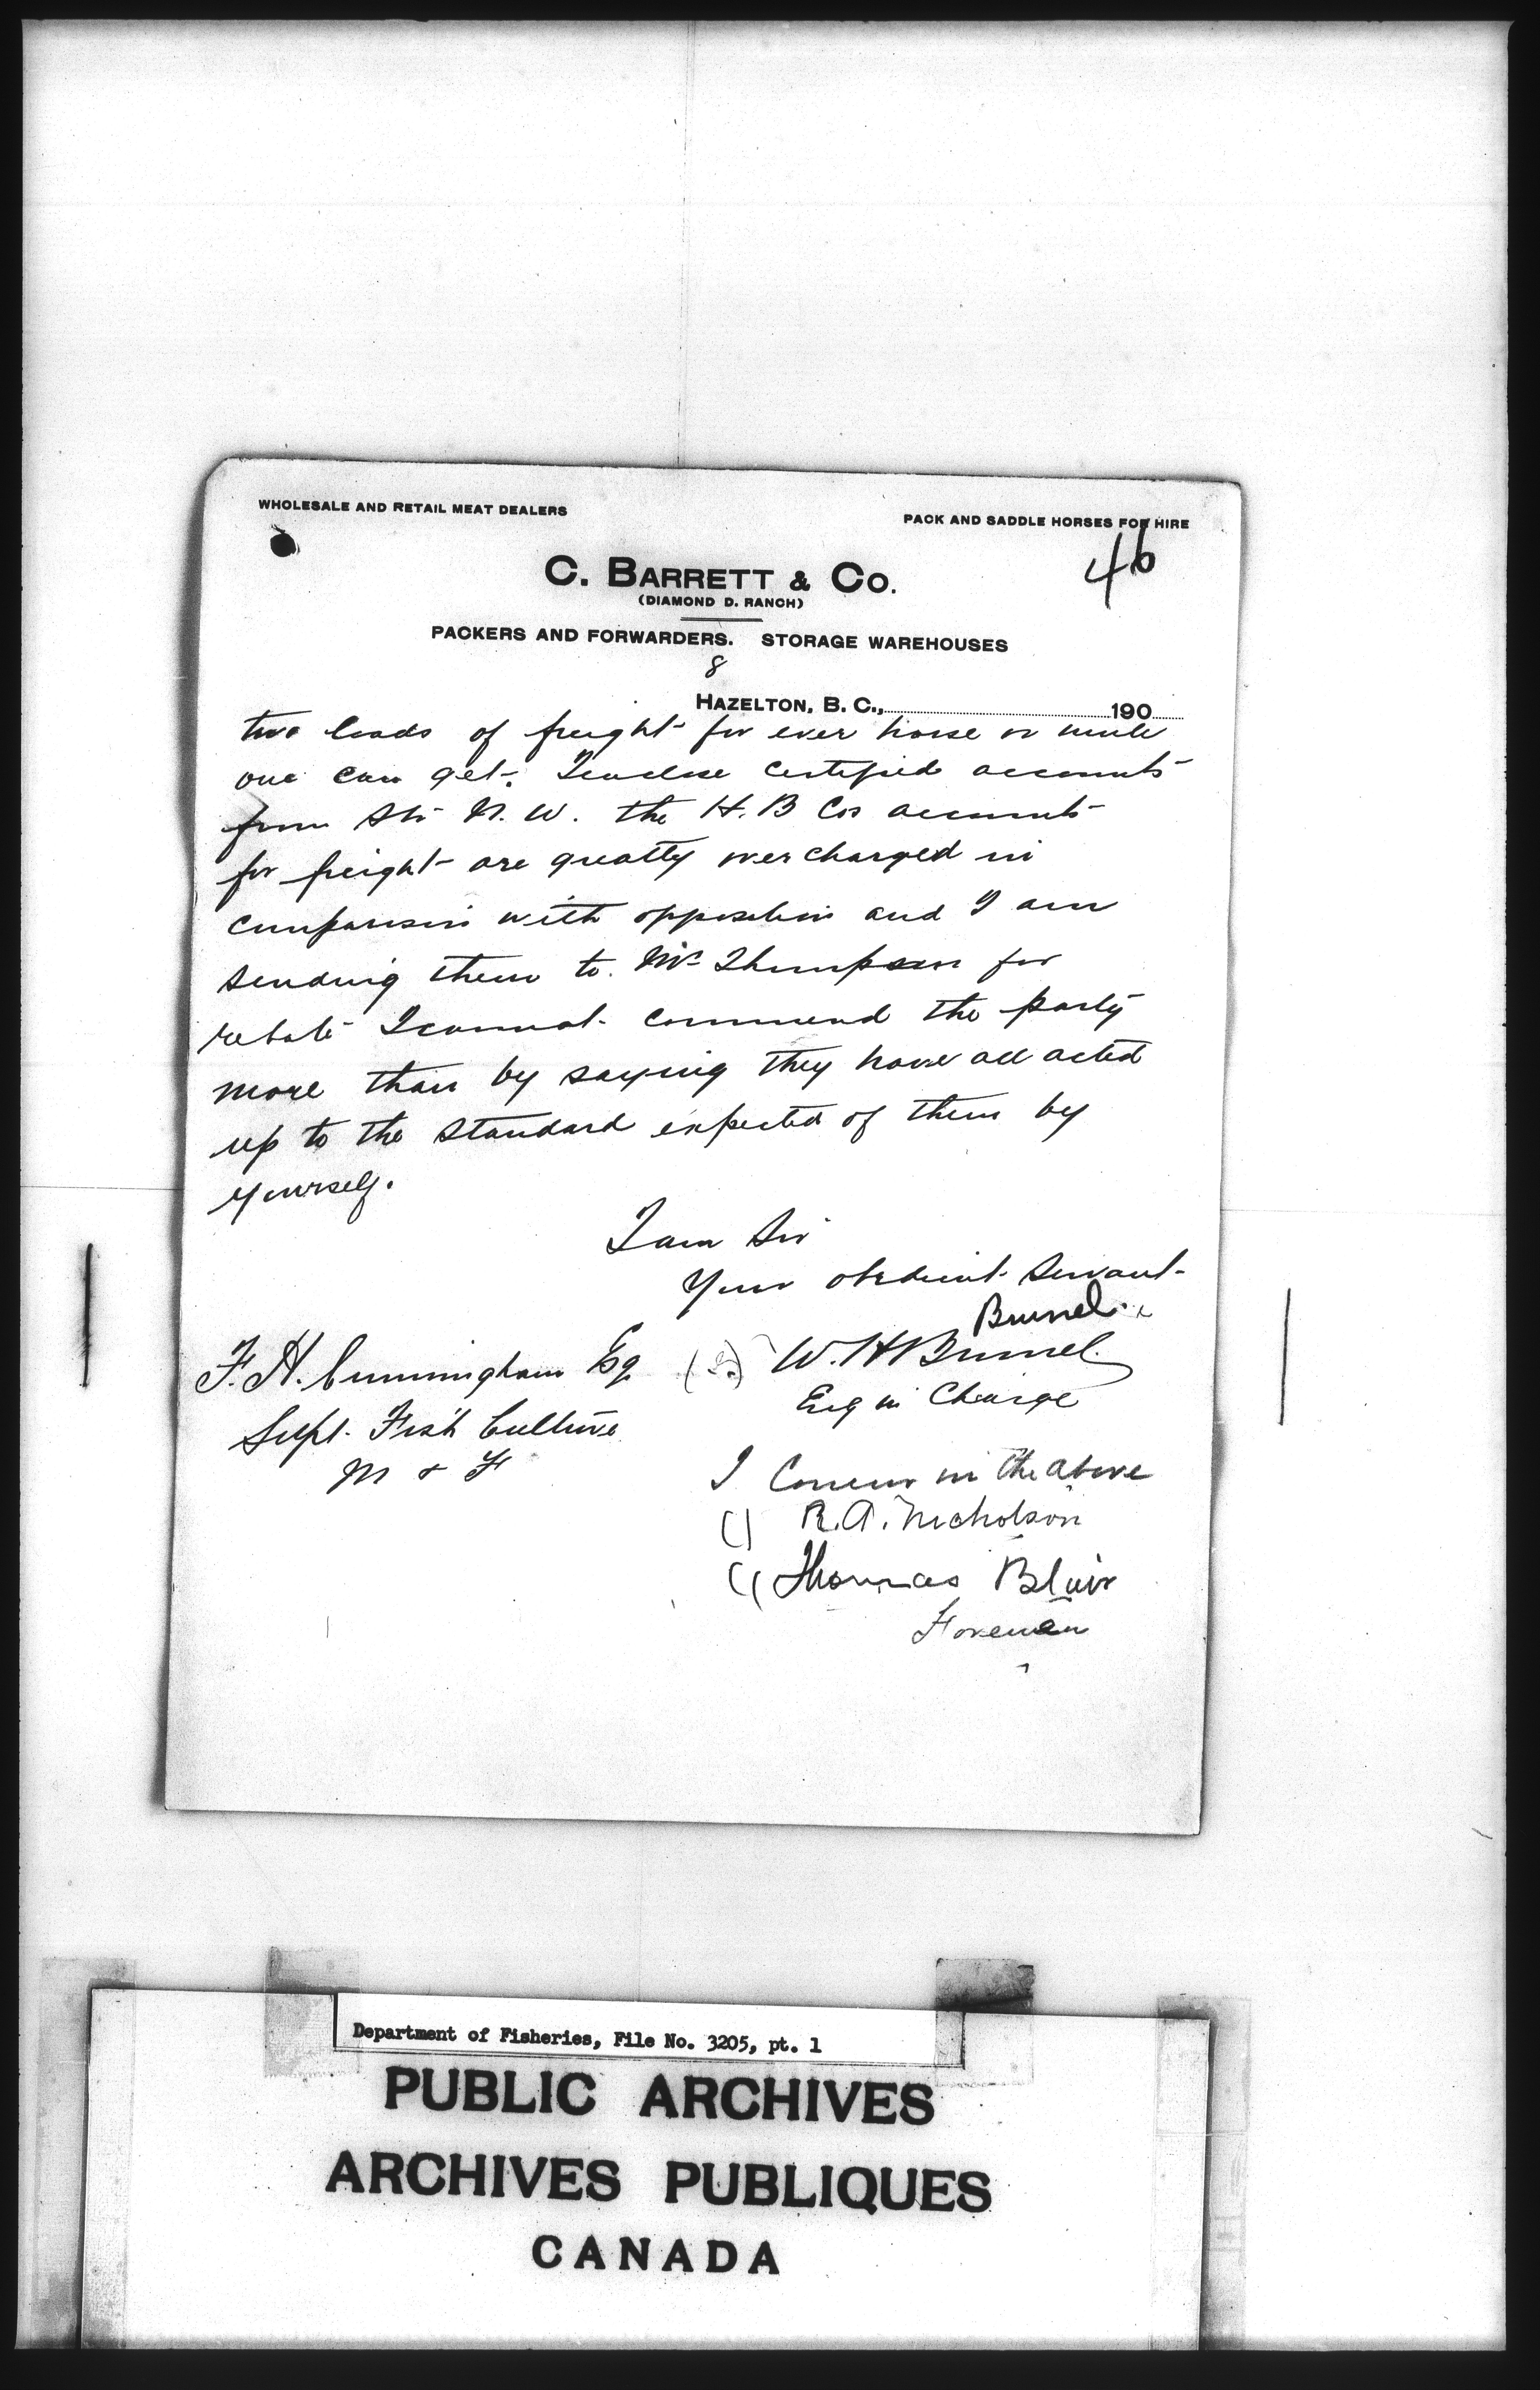 WHOLESALE AND RETAIL MEAT DEALERS
PACK AND SADDLE HORSES FOR HIRE
46
C. BARRETT & CO.
(DIAMOND D. RANCH)
PACKERS AND FORWARDERS. STORAGE WAREHOUSES
8
HAZELTON, B. C., 190
two loads of freight for ever horse or mule
one can get. I enclose certified accounts
from Str N. W. the H. B Cos accounts
for freight are greatly overcharged in
comparison with opposition and I am
sending them to Mr Thompson for
rebate I cannot commend the party
more than by saying they have all acted
up to the standard expected of them by
yourself.
I am Sir
Your obedient Servant
Brunel
F. H. Cunningham Esq W. H Brunel
Eng in Charge
Supt. Fish Culture
M & F
I Concur in the above
R. A. Nicholson
Thomas Blair
Foreman
Department of Fisheries, File No. 3205, pt. 1
PUBLIC ARCHIVES
ARCHIVES PUBLIQUES
CANADA